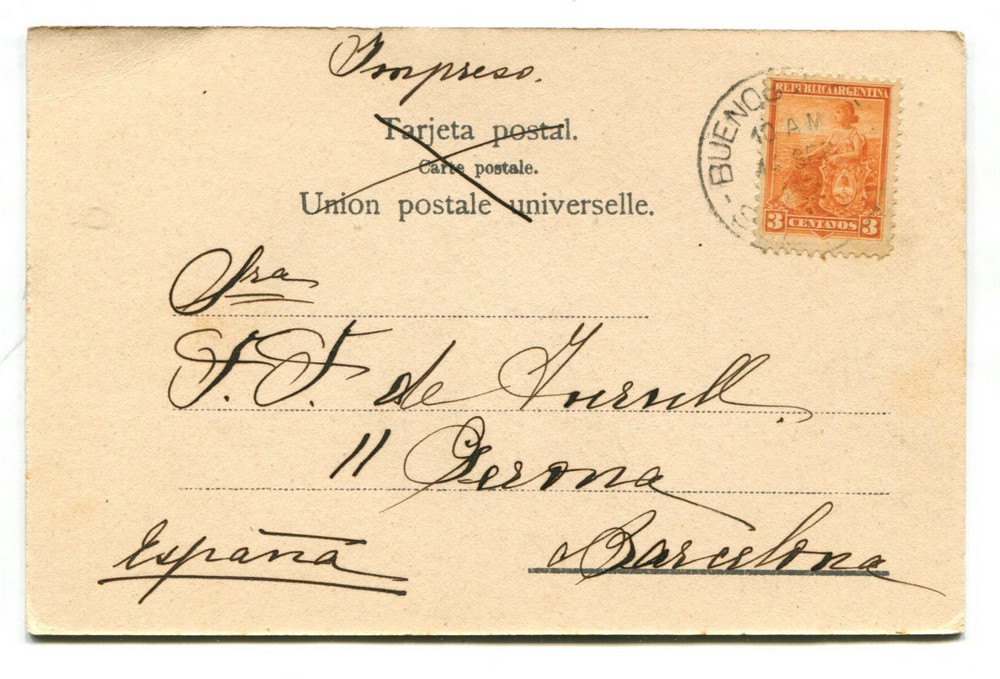 Impreso.
Tarjeta postal.
Carte postale.
Union postale universelle.
REPUBLICA ARGENTINA
3 CENTAVOS 3
BUENOS
10 AM
Sra
F. F. de
11 Gerona
Barcelona
España